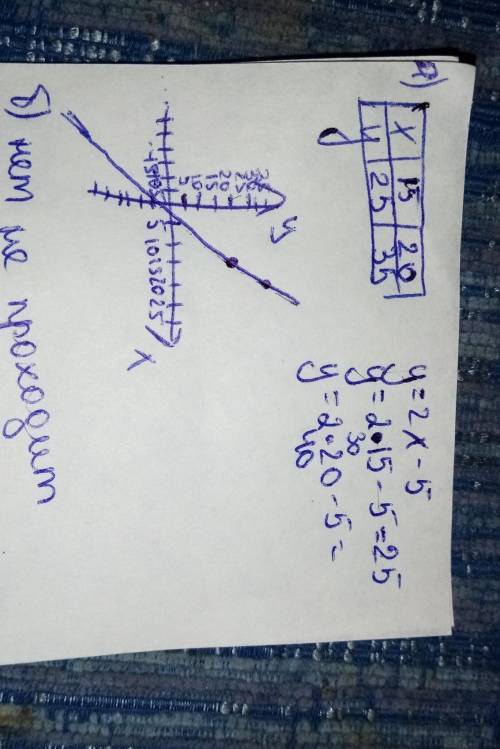 а)
x | 15 | 20
y | 25 | 35
y = 2x - 5
y = 2•15 - 5 = 25
30
y = 2•20 - 5 =
40
y
30
25
20
15
10
5
5 10 15 20 25
x
б) нет не проходит